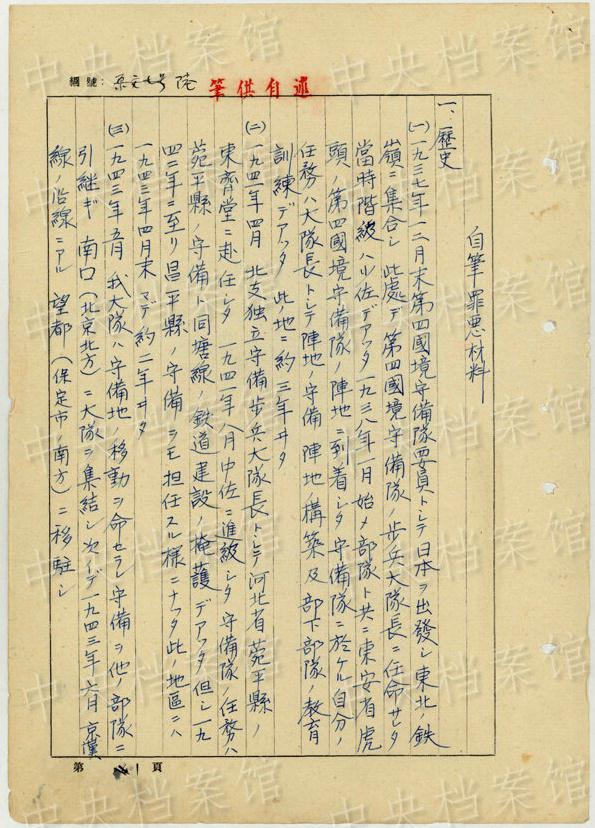 編號:
筆供自述
自筆罪悪材料
一、歷史
(一)一九三七年一二月末第四國境守備隊要員トシテ日本ヲ出發シ東北ノ鉄
嶺ニ集合シ此處デ第四國境守備隊ノ歩兵大隊長ニ任命サレタ
當時階級ハ少佐デアッタ一九三八年一月始メ部隊ト共ニ東安省虎
頭ノ第四國境守備隊ノ陣地ニ到着シタ守備隊ニ於ケル自分ノ
任務ハ大隊長トシテ陣地ノ守備陣地ノ構築及部下部隊ノ教育
訓練デアッタ此地ニ約三年ヰタ
(二)一九四一年四月北支独立守備歩兵大隊長トシテ河北省菀平縣ノ
東齊堂ニ赴任シタ一九四一年八月中佐ニ進級シタ守備隊ノ任務ハ
菀平縣ノ守備ト同塘線ノ鉄道建設ノ掩護デアッタ但シ一九
四二年ニ至リ昌平縣ノ守備ヲモ担任スル様ニナッタ此ノ地區ニハ
一九四三年四月末マデ約二年ヰタ
(三)一九四三年五月我大隊ハ守備地ノ移動ヲ命セラレ守備ヲ他ノ部隊ニ
引継ギ南口(北京北方)ニ大隊ヲ集結シ次イデ一九四三年六月京漢
線ノ沿線ニアル望都(保定市ノ南方)ニ移駐シ
第 1 頁
中央档案馆